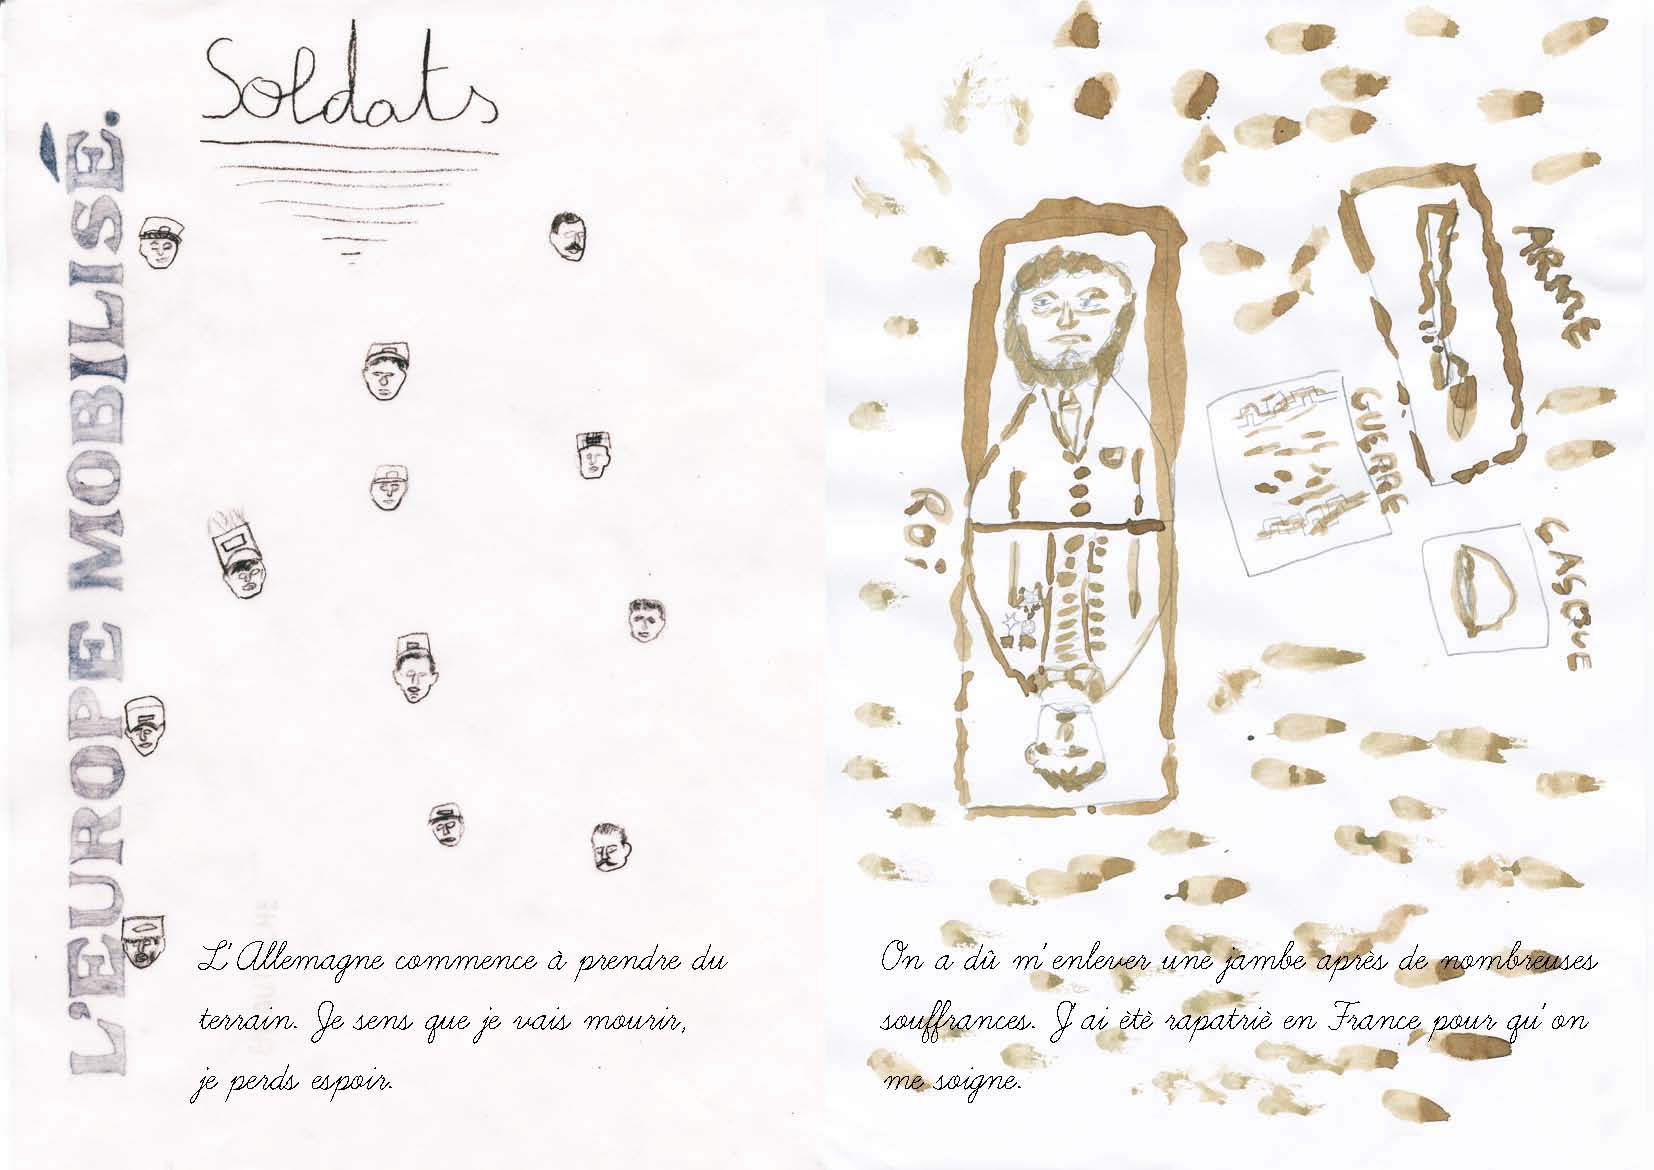 Soldats
L'EUROPE MOBILISÉ.
L'Allemagne commence à prendre du
terrain. Je sens que je vais mourir,
je perds espoir.
ROi
ARME
GUERRE
CASQUE
On a dû m'enlever une jambe après de nombreuses
souffrances. J'ai ètè rapatriè en France pour qu'on
me soigne.